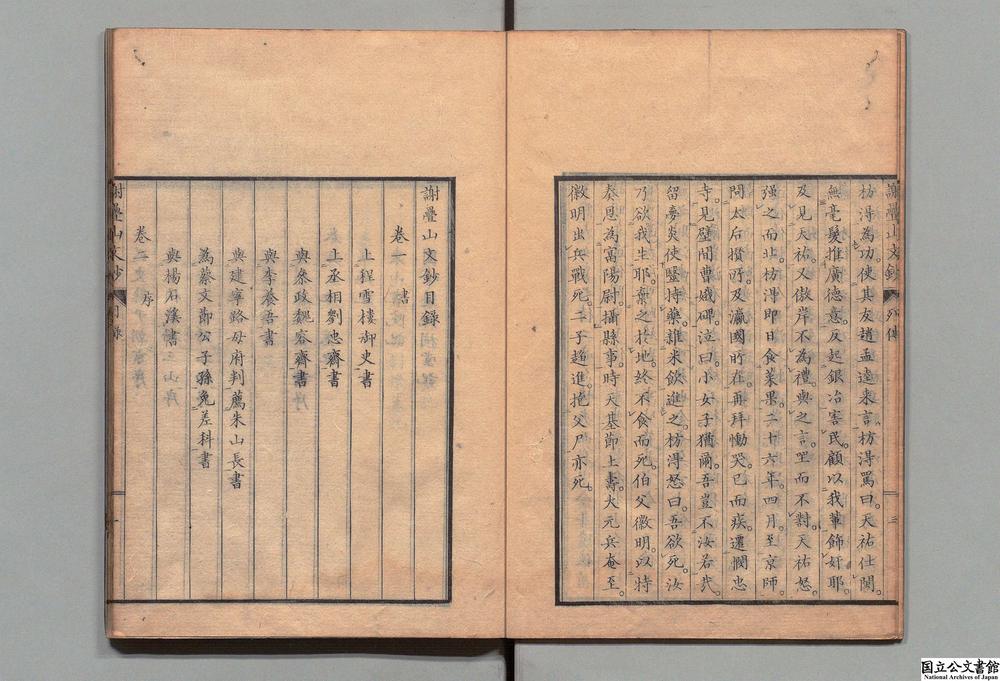 謝疊山文鈔 列傳
三
枋淂為功使其友趙孟𨓜来言枋淂罵曰天祐仕閩
無毫髮推廣德意反起銀冶害民顧以我軰飾好耶
及見天祐又傲岸不為禮與之言坐而不對天祐怒
强之而北枋淂即日食菜果二十六年四月至京師
問太后攢所及瀛國所在再拜慟哭已而疾遷憫忠
寺見壁間曹娥碑泣曰小女子猶爾吾豈不汝若㢤
留夢炎使毉持藥雜米飲進之枋淂怒曰吾欲死汝
乃欲我生耶棄之扵地終不食而死伯父徽明以特
奏恩為富陽尉攝縣事時天基節上壽大元兵奄至
徽明出兵戰死二子趨進抱父尸亦死
謝疊山文鈔目録
卷一 書
上程雪樓御史書
上丞相劉忠齋書
與叅政魏容齋書
與李養吾書
與建寧路母府判薦朱山長書
為蔡文節公子孫免差科書
與楊石溪書
卷二 序
謝疊山文鈔 目録
一
国立公文書館
National Archives of Japan